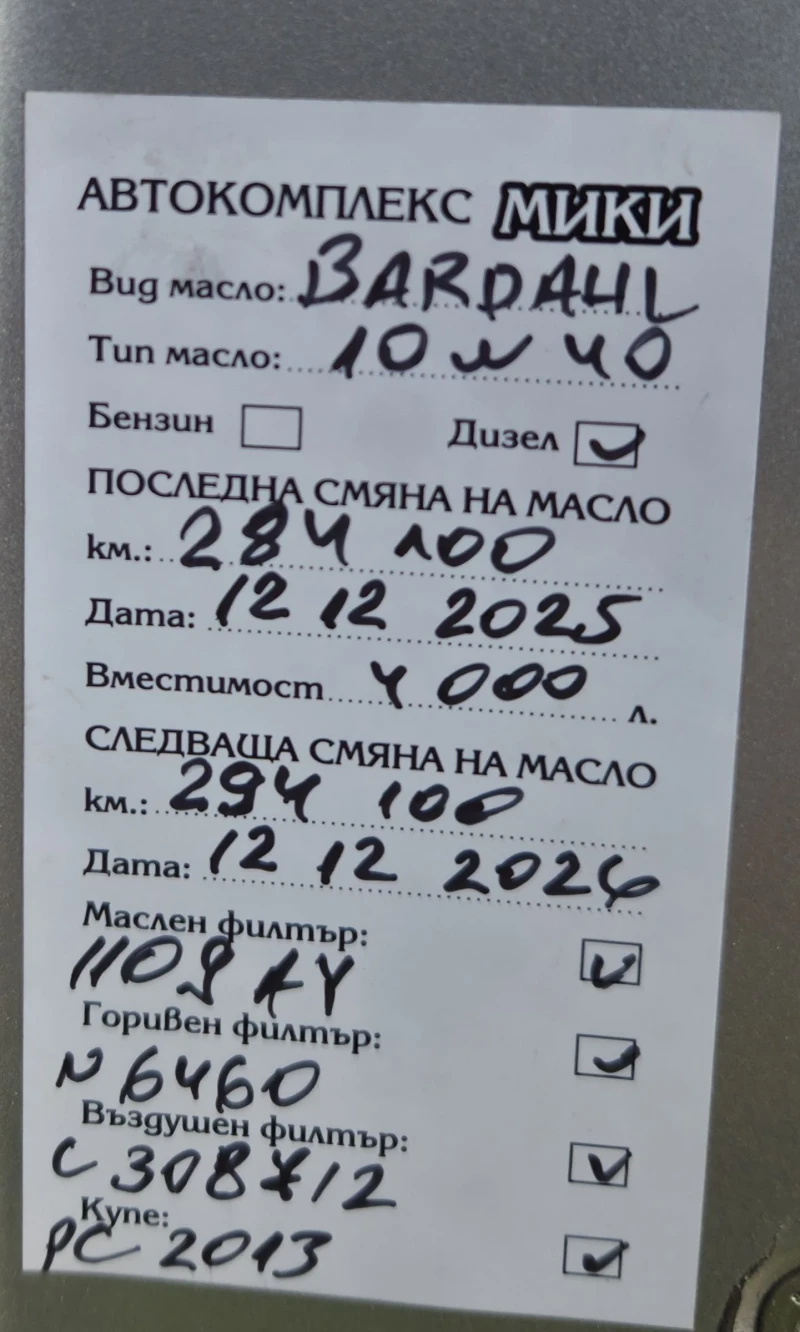 АВТОКОМПЛЕКС МИКИ
Вид масло: BARDAHL
Тип масло: 10 W 40
Бензин Дизел
ПОСЛЕДНА СМЯНА НА МАСЛО
км.: 284 100
Дата: 12 12 2025
Вместимост 4 000 л.
СЛЕДВАЩА СМЯНА НА МАСЛО
км.: 294 100
Дата: 12 12 2026
Маслен филтър:
1109
Горивен филтър:
N 6460
Въздушен филтър:
C 308
Купе:
PC 2013